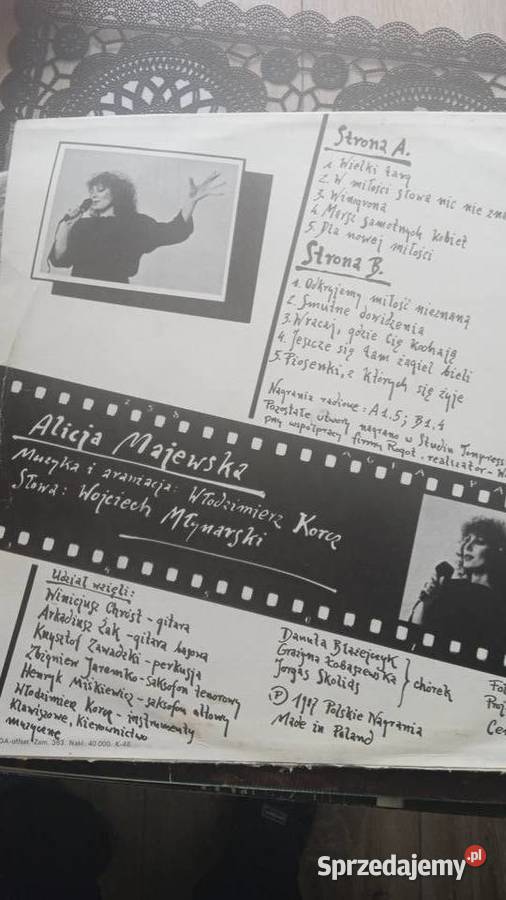 Strona A.
1. Wielki targ
2. W miłości słowa nic nie zna
3. Winogrona
4. Marsz samotnych kobiet
5. Dla nowej miłości
Strona B.
1. Odkryjemy miłość nieznaną
2. Smutne dowidzenia
3. Wracaj, gdzie Cię kochają
4. Jeszcze się tam żagiel bieli
5. Piosenki, z których się żyje
Nagrania radiowe: A1.5; B1.4
Pozostałe utwory nagrano w Studiu Tonpress
przy współpracy firmy Rogot - realizator - W
Alicja Majewska
Muzyka i aranżacja: Włodzimierz Korcz
Słowa: Wojciech Młynarski
Udział wzięli:
Winicjusz Chróst - gitara
Arkadiusz Żak - gitara basowa
Krzysztof Zawadzki - perkusja
Zbigniew Jaremko - saksofon tenorowy
Henryk Miśkiewicz - saksofon altowy
Włodzimierz Korcz - instrumenty
klawiszowe, kierownictwo
muzyczne
Danuta Błażejczyk
Grażyna Łobaszewska
Jorgos Skolias
chórek
Ⓟ 1987 Polskie Nagrania
Made in Poland
Fot
Proj
Cen
DA-offset. Zam. 383. Nakł. 40 000. K-46
Sprzedajemy.pl